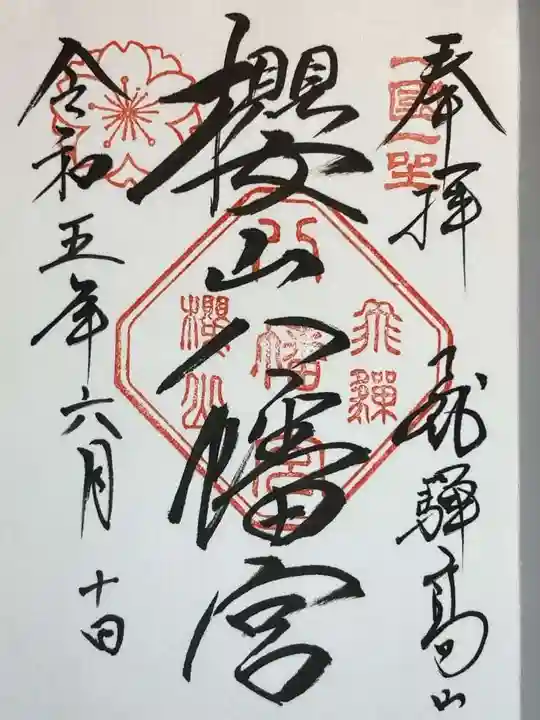 奉拝
飛騨高山
櫻山八幡宮
令和五年六月十日
一國一
飛騨
八幡宮
櫻山